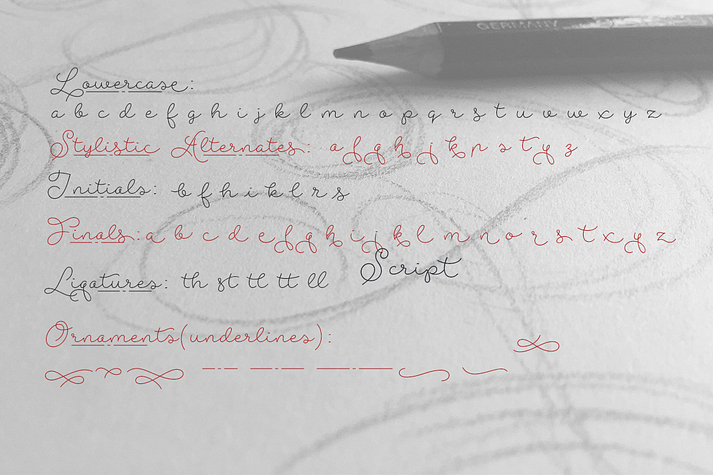 GERMANY
Lowercase:
a b c d e f g h i j k l m n o p q r s t u v w x y z
Stylistic Alternates: a f g h j k p s t y z
Initials: b f h i k l r s
Finals: a b c d e f g h i j k l m n o r s t x y z
Ligatures: th st tl tt ll
Script
Ornaments(underlines):